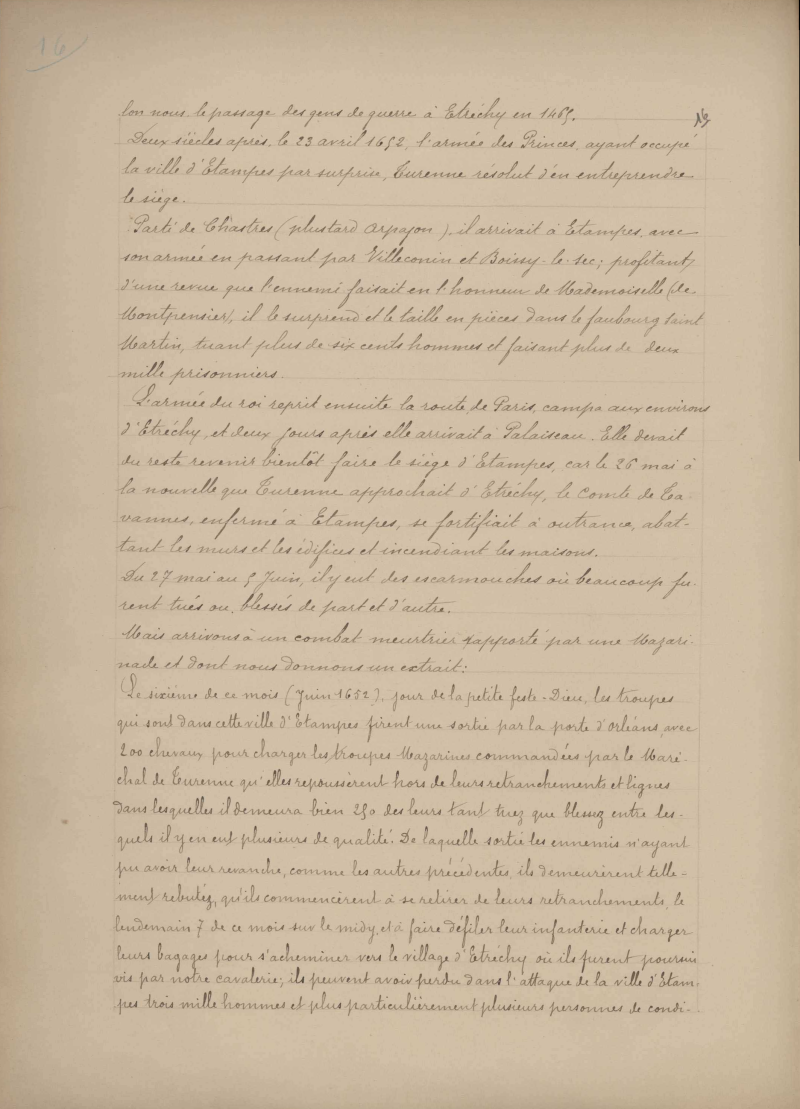 16
lon nous le passage des gens de guerre à Etréchy en 1465.
Deux siècles après, le 23 avril 1652, l'armée des Princes, ayant occupé
la ville d'Etampes par surprise, Turenne résolut d'en entreprendre
le siège.
Parti de Châstres (plus tard Arpajon), il arrivait à Etampes, avec
son armée en passant par Villeconin et Boissy-le-sec; profitant
d'une revue que l'ennemi faisait en l'honneur de Mademoiselle (de
Montpensier), il le surprend et le taille en pièces dans le faubourg Saint
Martin, tuant plus de six cents hommes et faisant plus de deux
mille prisonniers.
L'armée du roi reprit ensuite la route de Paris, campa aux environs
d'Etréchy, et deux jours après elle arrivait à Palaiseau. Elle devait
du reste revenir bientôt faire le siège d'Etampes, car le 26 mai à
la nouvelle que Turenne approchait d'Etréchy, le Comte de Ta-
vannes, enfermé à Etampes, se fortifiait à outrance, abat-
tant les murs et les édifices et incendiant les maisons.
Du 27 mai au 5 Juin, il y eut des escarmouches où beaucoup fu-
rent tués ou blessés de part et d'autre.
Mais arrivons à un combat meurtrier rapporté par une Mazari-
nade et dont nous donnons un extrait:
Le sixième de ce mois (Juin 1652), jour de la petite feste-Dieu, les troupes
qui sont dans cette ville d'Etampes firent une sortie par la porte d'orléans, avec
200 chevaux pour charger les troupes Mazarines commandées par le Maré-
chal de Turenne qu'elles repoussèrent hors de leurs retranchements et lignes
dans lesquelles il demeura bien 250 des leurs tant tuez que blessuz entre les-
quels il y en eut plusieurs de qualité. De laquelle sortie les ennemis n'ayant
pu avoir leur revanche, comme les autres précédentes, ils demeurèrent telle-
ment rebutez, qu'ils commencèrent à se retirer de leurs retranchements, le
lendemain 7 de ce mois sur le midy, et à faire défiler leur infanterie et charger
leurs bagages pour s'acheminer vers le village d'Etréchy où ils furent poursui
vis par notre cavalerie; ils peuvent avoir perdu dans l'attaque de la ville d'Etam-
pes trois mille hommes et plus particulièrement plusieurs personnes de condi-